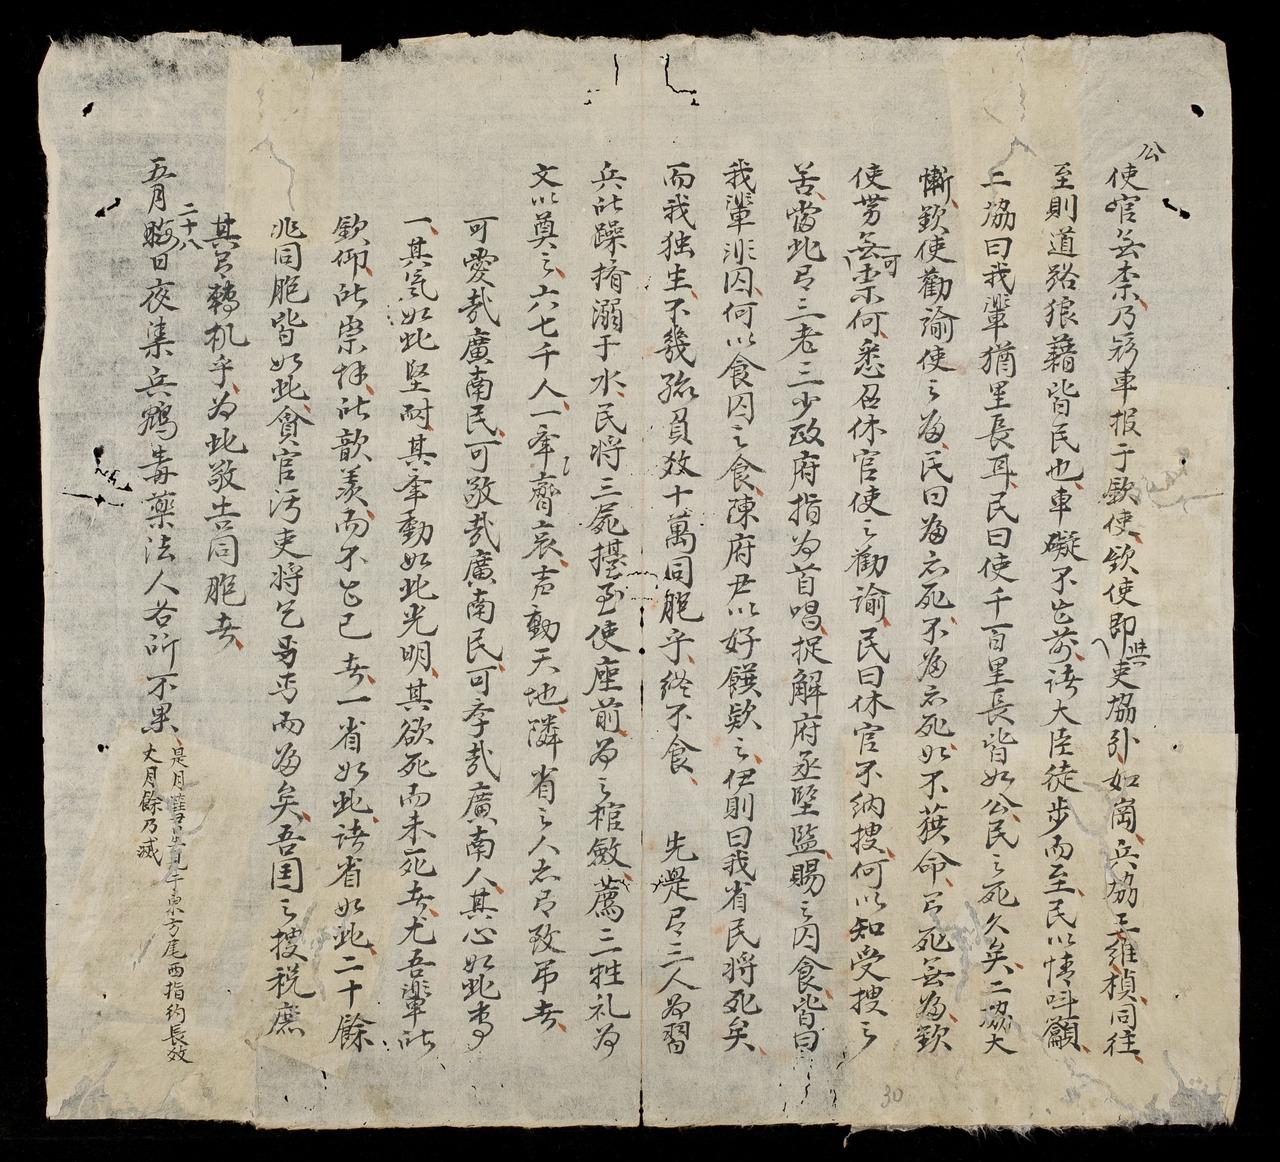 公
使官無柰乃馳車报于欽使欽使即與吏協弁如崗兵協王維楨同往
至則道路狼藉皆民也車礙不能前諸大臣徒步而至民以情呌籲
二協曰我輩猶里長耳民曰使千百里長皆如公民之死久矣二協大
慚欽使勸諭使之為民曰為亦死不為亦死如不獲命有死無為欽
使勞無可柰何悉召休官使之勸諭民曰休官不納搜何以知受搜之
苦當此有三老三少政府指为首唱捉解府丞堅監賜之囚食皆曰
我輩非囚何以食囚之食陳府尹以好饌欵之伊則曰我省民將死矣
而我独生不幾孤負数十萬同胞乎終不食 先是有三人为習
兵所躁擠溺于水民将三屍擡至使座前为之棺斂薦三牲礼为
文以奠之六七千人一牽齊哀声動天地隣省之人亦有致吊者
可愛哉廣南民可敬哉廣南民可孝哉廣南人其心如此專
一其氣如此堅耐其牽動如此光明其欲死而未死者尤吾輩所
欽仰所崇拜所歆羨而不能已者一省如此諸省如此二十餘
兆同胞皆如此貪官污吏将乞丐而為矣吾国之搜税庶
其有轉机乎为此敬告同胞者
五月晦日夜集兵鴆毒藥法人若所不果 是月彗星見于東方尾西指約長数
二十八
丈月餘乃滅
30